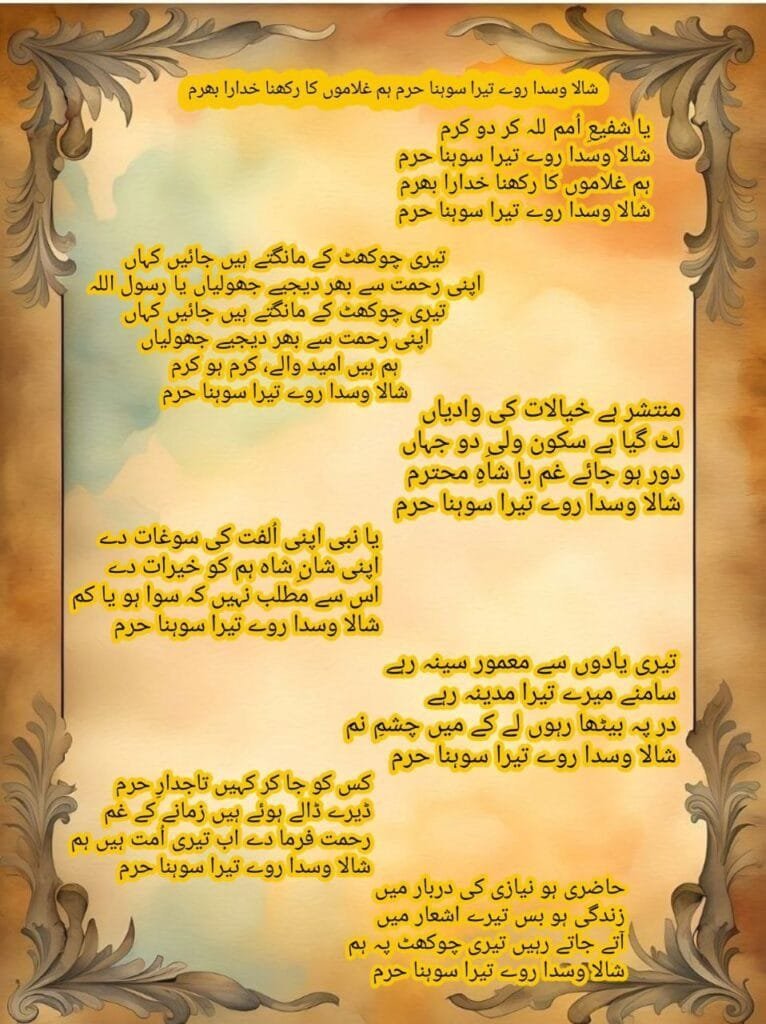 شالا وسدا روے تیرا سوہنا حرم ہم غلاموں کا رکھنا خدارا بھرم
یا شفیعِ اُمم للہ کر دو کرم
شالا وسدا روے تیرا سوہنا حرم
ہم غلاموں کا رکھنا خدارا بھرم
شالا وسدا روے تیرا سوہنا حرم
تیری چوکھٹ کے مانگتے ہیں جائیں کہاں
اپنی رحمت سے بھر دیجیے جھولیاں یا رسول اللہ
تیری چوکھٹ کے مانگتے ہیں جائیں کہاں
اپنی رحمت سے بھر دیجیے جھولیاں
ہم ہیں امید والے، کرم ہو کرم
شالا وسدا روے تیرا سوہنا حرم
منتشر ہے خیالات کی وادیاں
لٹ گیا ہے سکون ولی دو جہاں
دور ہو جائے غم یا شاہِ محترم
شالا وسدا روے تیرا سوہنا حرم
یا نبی اپنی اُلفت کی سوغات دے
اپنی شانِ شاہ ہم کو خیرات دے
اس سے مطلب نہیں کہ سوا ہو یا کم
شالا وسدا روے تیرا سوہنا حرم
تیری یادوں سے معمور سینہ رہے
سامنے میرے تیرا مدینہ رہے
در پہ بیٹھا رہوں لے کے میں چشمِ نم
شالا وسدا روے تیرا سوہنا حرم
کس کو جا کر کہیں تاجدارِ حرم
ڈیرے ڈالے ہوئے ہیں زمانے کے غم
رحمت فرما دے اب تیری اُمت ہیں ہم
شالا وسدا روے تیرا سوہنا حرم
حاضری ہو نیازی کی دربار میں
زندگی ہو بس تیرے اشعار میں
آتے جاتے رہیں تیری چوکھٹ پہ ہم
شالا وسدا روے تیرا سوہنا حرم